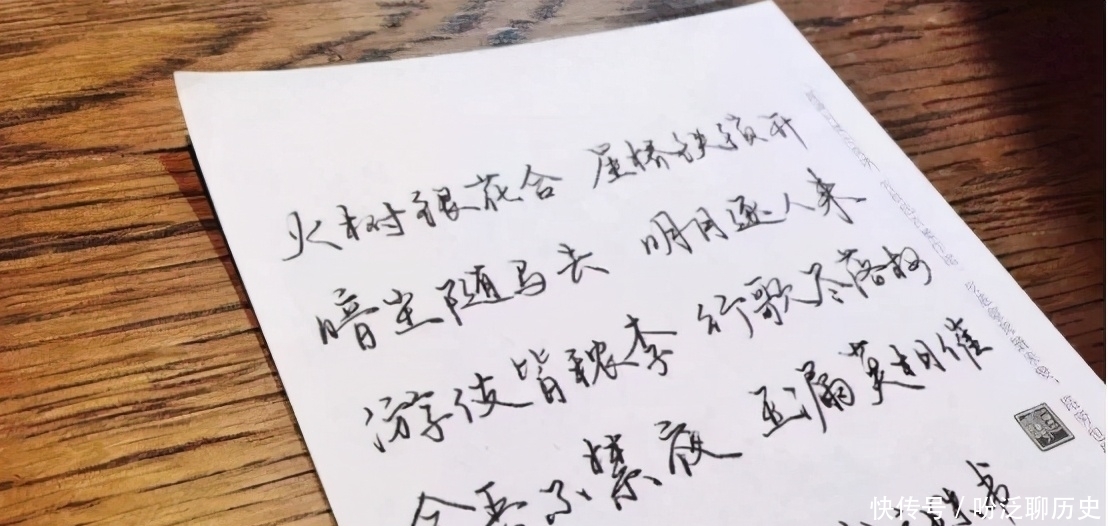 火树银花合 星桥铁锁开
暗尘随马去 明月逐人来
游伎皆秾李 行歌尽落梅
金吾不禁夜 玉漏莫相催
书
快传号 / 吩泛聊历史